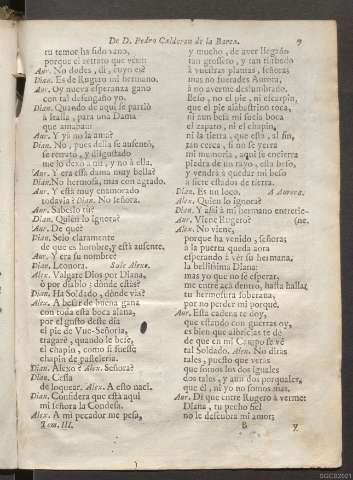 De D. Pedro Calderon de la Barca. 9
tu temor ha sido vano,
porque el retrato que veen
Aur. No dudes, di, cuyo es?
Dian. Es de Rugero mi hermano.
Aur. Oy nueva esperanza gano
con tal desengaño yo.
Dian. Quando de aqui se partiò
à Italia, para una Dama
que amaba::
Aur. Y yà no la ama?
Dian. No, pues della se ausentò,
se retrato, y disgustado
me lo dexò à mi, y no à ella.
Aur. Y era essa dama muy bella?
Dian. No hermosa, mas con agrado.
Aur. Y està muy enamorado
todavia? Dian. No señora.
Aur. Sabeslo tu?
Dian. Quien lo ignora?
Aur. De què?
Dian. Selo claramente
de que es hombre, y està ausente.
Aur. Y era su nombre?
Dian. Leonora. Sale Alexo.
Alex. Valgate Dios por Diana,
ò por diablo: dònde estàs?
Dian. Ha Soldado, dònde vàs?
Alex. A besar de buena gana
con toda esta boca alana,
por el gusto desde dia
el pie de Vue-Señoria,
tragarè, quando le bese,
el chapin, como si fuesse
chapin de pasteleria.
Dian. Alexo? Alex. Señora?
Dian. Cessa
de loquear. Alex. A esto naci.
Dian. Considera que està aqui
mi señora la Condesa.
Alex. A mi pecador me pesa,
Tom. III.
y mucho, de aver llegado
tan grossero, y tan turbado
à vuestras plantas, señoras
mas no fuerades Aurora,
à no averme deslumbrado.
Beso, no el pie, ni escarpin,
que el pie alabastrino toca,
ni aun besa mi sucia boca
el zapato, ni el chapin,
ni la tierra, que està, al fin,
tan cerca, si no se yerra
mi memoria, aqui se encierra
piedra de un rayo, esta beso,
y vendrà à quedar mi beso
à siete estados de tierra.
Dian. Es un loco. A Aurora.
Alex. Quien lo ignora?
Dian. Y assi à mi hermano entretie-
Aur. Viene Rugero? (ne.
Alex. No viene,
porque ha venido, señora;
à la puerta queda aora
esperando à vèr su hermana,
la bellissima Diana:
mas yo que no sè esperar,
me entrè acà dentro, hasta hallar
tu hermosura soberana,
por no perder mi porque.
Aur. Esta cadena te doy,
que estando con guerras oy,
es bien que albricias te dè
de que en mi Campo se vè
tal Soldado. Alex. No diràs
tales, puesto que veràs
que somos los dos iguales
dos tales, y aun dos porquales,
que èl, ni yo no somos mas.
Aur. Di que entre Rugero à verme:
Diana, tu pecho fiel
no le descubra mi amor;
B y